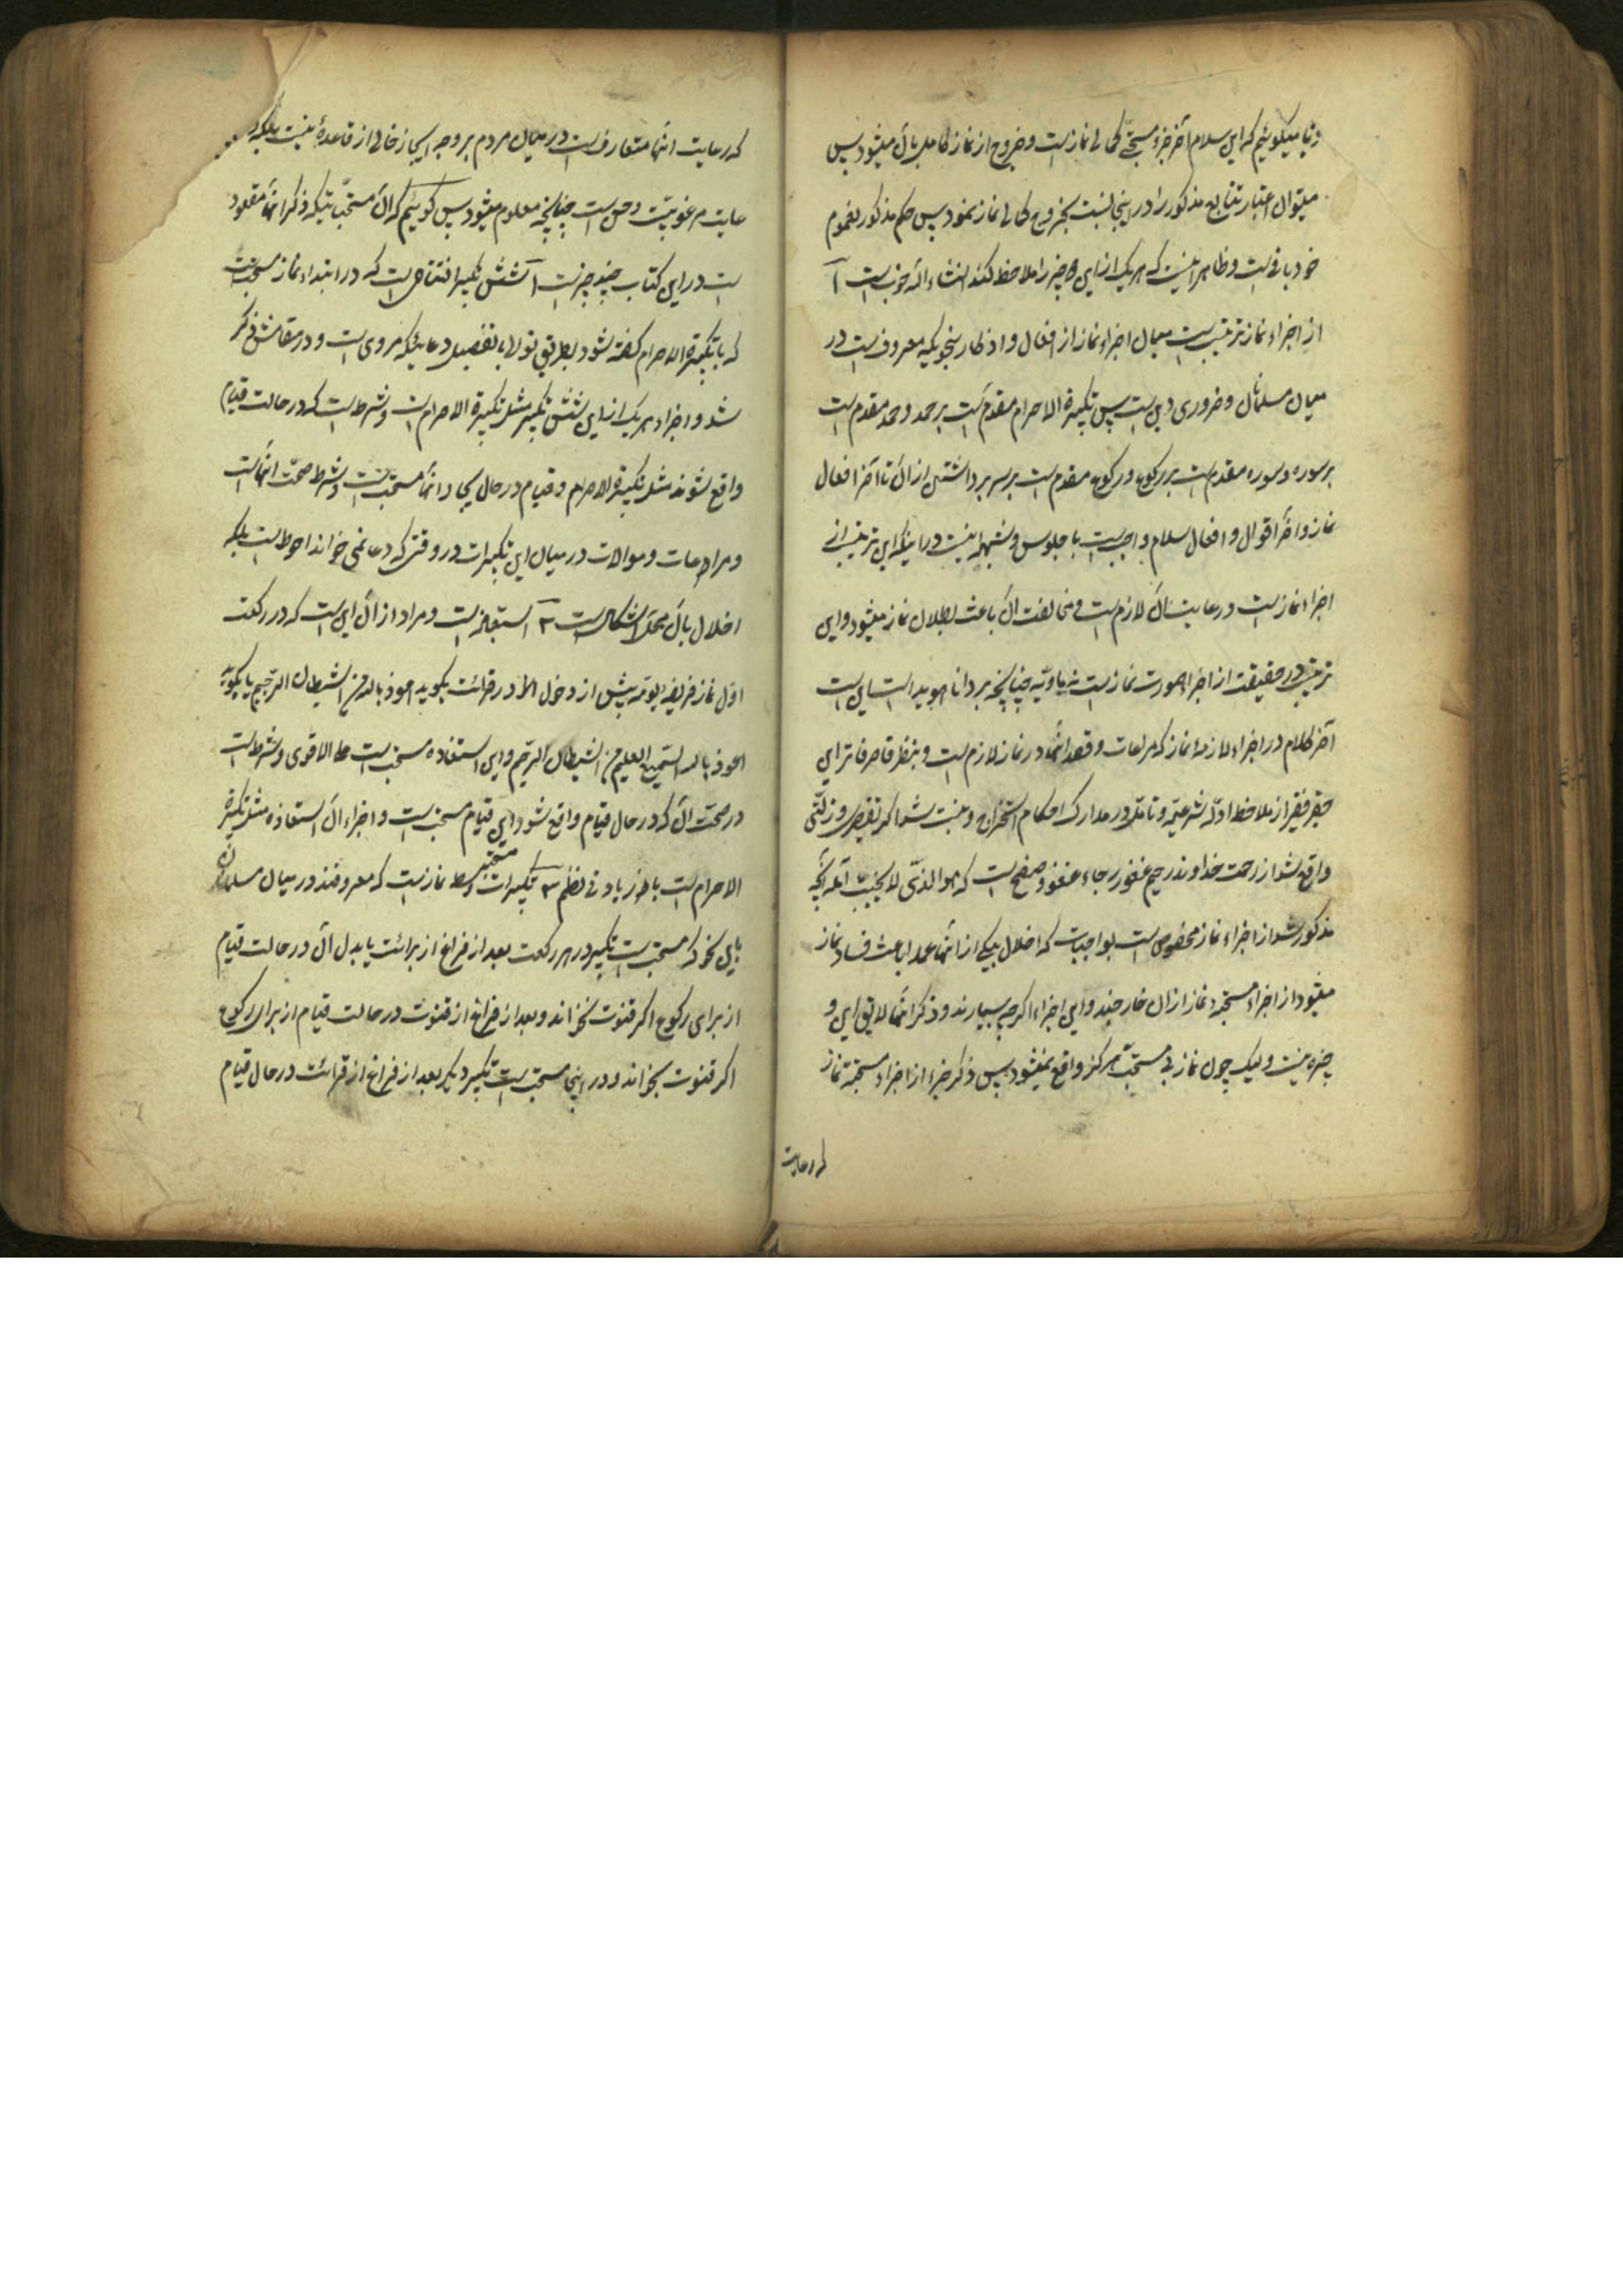 و ثانیا میگوئیم که این سلام آخر جزء مستحبی کمالی نماز است و خروج از نماز کامل بآن میشود پس
میتوان اعتبار تتابع مذکور را در اینجا نسبت بخروج کمالی نماز نمود پس حکم مذکور بعموم
خود باقیست و ظاهر اینست که هر یک از این چیز را ملاحظه کند انشاء الله خوبست
از اجزاء نماز ترتیب است میان اجزاء نماز از افعال و اذکار بنحویکه معروفست در
میان مسلمانان و ضروری دین است پس تکبیرة الاحرام مقدم است بر حمد و حمد مقدم است
بر سوره و سوره مقدم است بر رکوع و رکوع مقدم است بر سر برداشتن از آن تا آخر افعال
نماز و آخر اقوال و افعال سلام واجب است با جلوس و شبهه نیست در اینکه این ترتیب از
اجزاء نماز است و رعایت آن لازم است و مخالفت آن باعث بطلان نماز میشود و این
ترتیب در حقیقت از اجزاء صورت نماز است نه مادیه چنانچه بر دانا هویداست این است
آخر کلام در اجزاء لازمهٔ نماز که مراعات و قصد انها در نماز لازم است و بنظر قاصر فاتر این
حقیر فقیر از ملاحظه ادلّه شرعیّه و تامل در مدارک احکام استخراج و مثبت شد اگر تقصیری و زلّتی
واقع شد از رحمت خداوند رحیم غفور رجاء عفو و صفح است که هو الذی لا یخیب آمله آنچه
مذکور شد از اجزاء نماز مخصوص است بواجبات که اخلال بیکی از انها عمدا باعث فساد نماز
میشود از اجزاء مستحبه نماز از آن خارجند و این اجزاء اگرچه بسیارند و ذکر انها لایق این و
جیزه نیست ولیک چون نماز بی مستحب هرگز واقع نمیشود پس ذکر جزء از اجزاء مستحبه نماز
که رعایت
که رعایت انها متعارف است در میان مردم بر وجه ایجاز خالی از قاعدهٔ نیست بلکه
غایت مرغوبیّت و حسن است چنانچه معلوم میشود پس گوئیم که آن مستحباتیکه ذکر انها مقصود
است در این کتاب چند چیز است ۱ شش تکبیر افتتاحی است که در ابتداء نماز مستحبست
که با تکبیرة الاحرام گفته شود بطریق تولا با تفصیل دعائیکه مروی است و در مقامش ذکر
شد و اجزاء هر یک از این شش تکبیر مثل تکبیرة الاحرام است و شرط است که در حالت قیام
واقع شوند مثل تکبیرة الاحرام و قیام در حال بجا دانها مستحبست و شرط صحّت انهاست
و مراعات و موالات در میان این تکبیرات در وقتی که دعا نمی خواند احوط است بلکه
اخلال بآن محل اشکال است ۲ استعاذه است و مراد از آن این است که در رکعت
اول نماز فریضهٔ یومیّه پیش از دخول در قرائت بگوید اعوذ بالله من الشیطان الرجیم یا بگوید
اعوذ بالله السّمیع العلیم من الشیطان الرّجیم و این استعاذه مستحب است علی الاقوی و شرط است
در صحّت آن که در حال قیام واقع شود این قیام مستحب است و اجزاء آن استعاذه مثل تکبیرة
الاحرام است ۳ تکبیرات مستحبه وسط نماز است که معروفند در میان مسلمانان
باین نحو که مستحب است تکبیر در هر رکعت بعد از فراغ از برائت یا بدل آن در حالت قیام
از برای رکوع اگر قنوت نخواند و بعد از فراغ از قنوت در حالت قیام از برای رکوع
اگر قنوت بخواند و در اینجا مستحب است تکبیر دیگر بعد از فراغ از قرائت در حال قیام